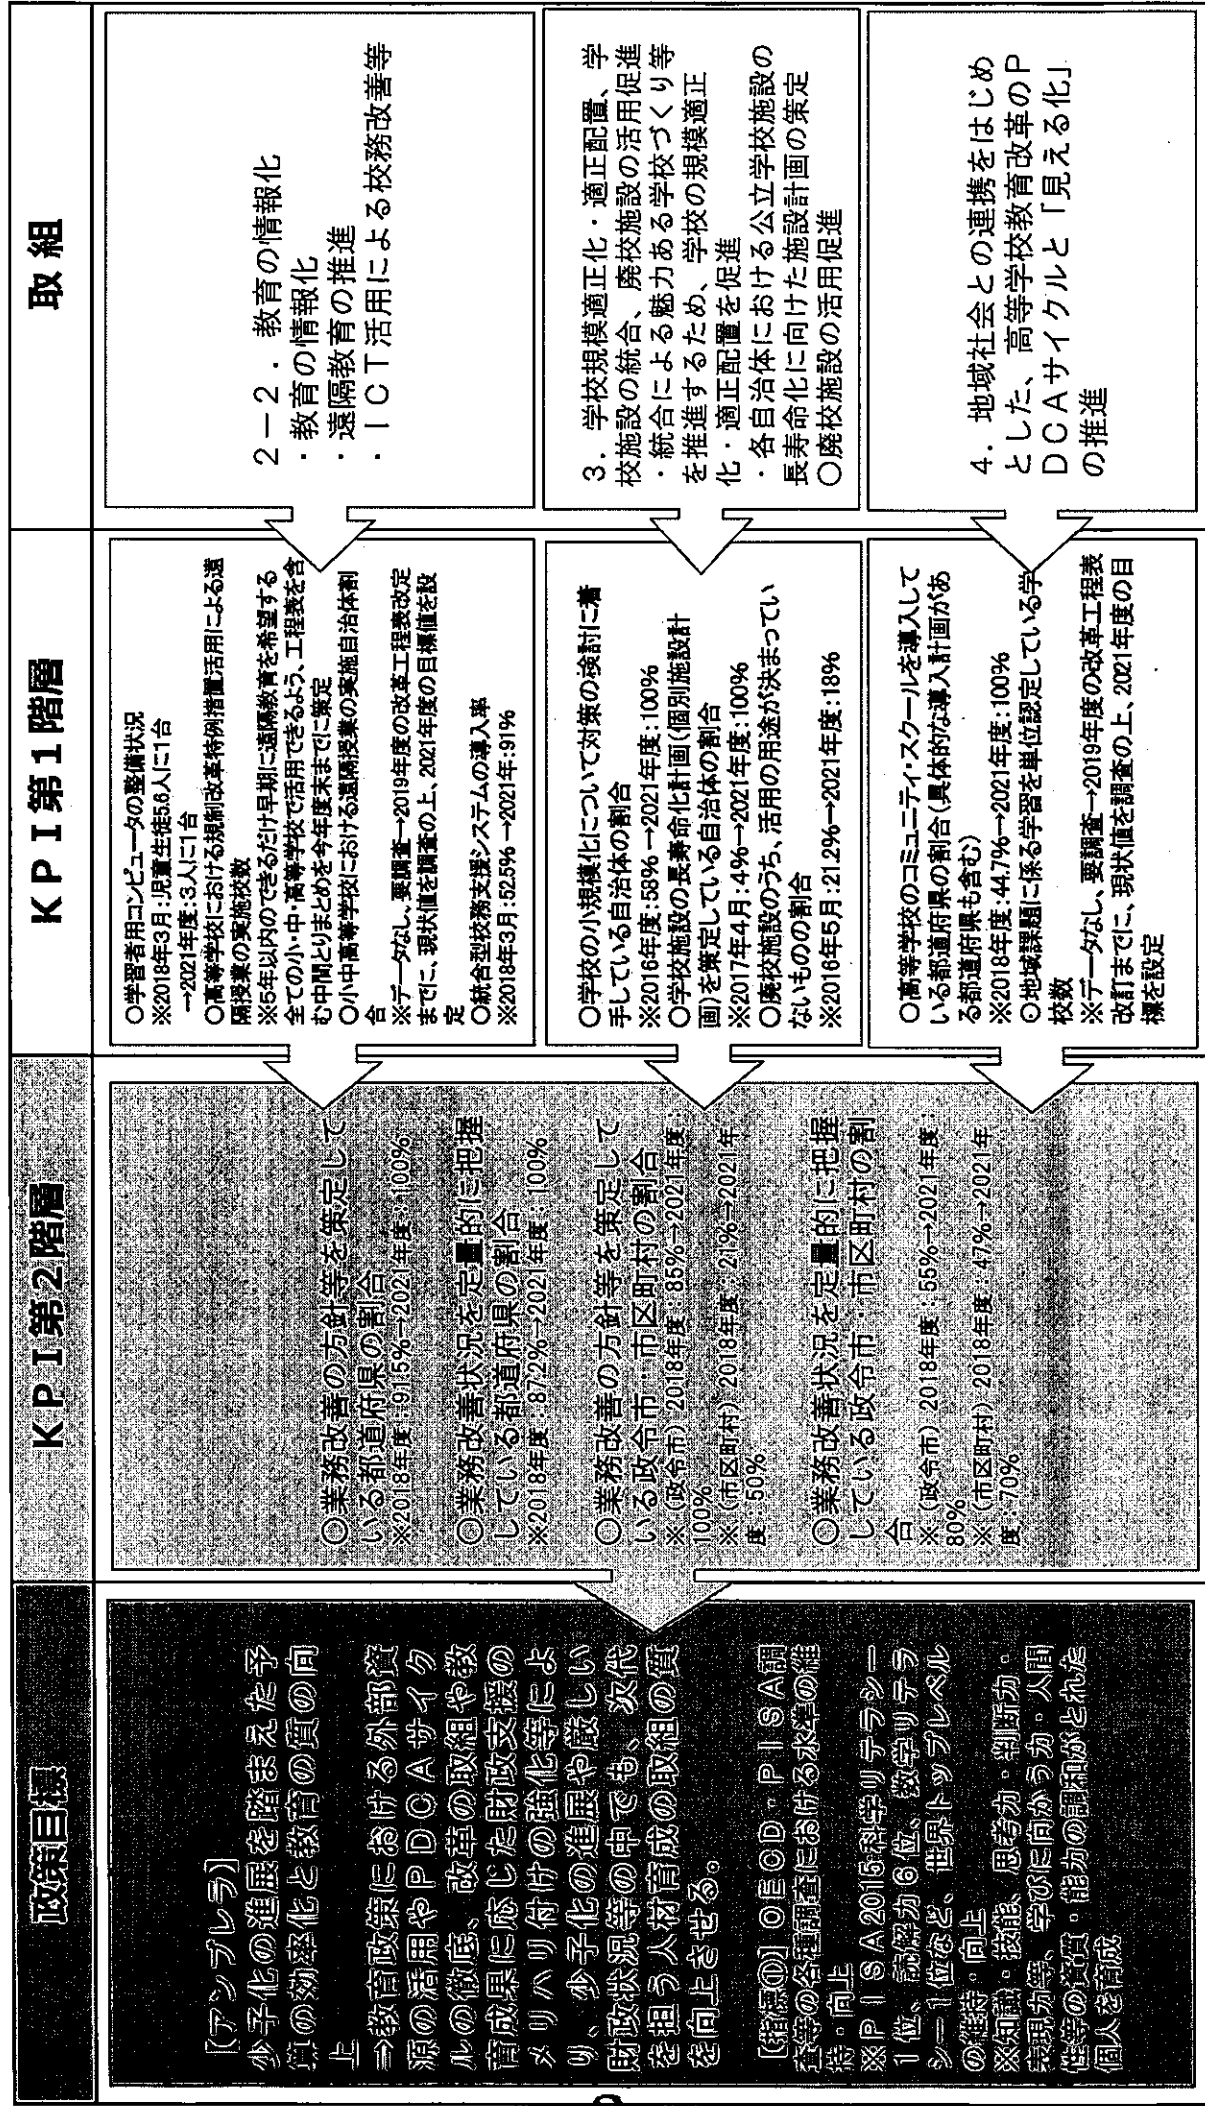 政策目標
【アンブレラ】
少子化の進展を踏まえた予
算の効率化と教育の質の向
上
⇒教育政策における外部資
源の活用やPDCAサイク
ルの徹底、改革の取組や教
育成果に応じた財政支援の
メリハリ付けの強化等によ
り、少子化の進展や厳しい
財政状況等の中でも、次代
を担う人材育成の取組の質
を向上させる。
【指標①】OECD・PISA調
査等の各種調査における水準の維
持・向上
※PISA2015：科学リテラシー
1位、読解力6位、数学リテラ
シー1位など、世界トップレベル
の維持・向上
※知識・技能、思考力・判断力・
表現力等、学びに向かう力・人間
性等の資質・能力の調和がとれた
個人を育成
KPI第2階層
○業務改善の方針等を策定して
いる都道府県の割合
※2018年度：91.5%→2021年度：100%
○業務改善状況を定量的に把握
している都道府県の割合
※2018年度：87.2%→2021年度：100%
○業務改善の方針等を策定して
いる政令市・市区町村の割合
※（政令市）2018年度：85%→2021年度：
100%
※（市区町村）2018年度：21%→2021年
度：50%
○業務改善状況を定量的に把握
している政令市・市区町村の割
合
※（政令市）2018年度：55%→2021年度：
80%
※（市区町村）2018年度：47%→2021年
度：70%
KPI第1階層
○学習者用コンピュータの整備状況
※2018年3月：児童生徒5.6人に1台
→2021年度：3人に1台
○高等学校における規制改革特例措置活用による遠
隔授業の実施校数
※5年以内のできるだけ早期に遠隔教育を希望する
全ての小・中・高等学校で活用できるよう、工程表を含
む中間とりまとめを今年度末までに策定
○小中高等学校における遠隔授業の実施自治体割
合
※データなし、要調査→2019年度の改革工程表改定
までに、現状値を調査の上、2021年度の目標値を設
定
○統合型校務支援システムの導入率
※2018年3月：52.5%→2021年：91%
○学校の小規模化について対策の検討に着
手している自治体の割合
※2016年度：58%→2021年度：100%
○学校施設の長寿命化計画（個別施設計
画）を策定している自治体の割合
※2017年4月：4%→2021年度：100%
○廃校施設のうち、活用の用途が決まってい
ないものの割合
※2016年5月：21.2%→2021年度：18%
○高等学校のコミュニティ・スクールを導入して
いる都道府県の割合（具体的な導入計画があ
る都道府県も含む）
※2018年度：44.7%→2021年度：100%
○地域課題に係る学習を単位認定している学
校数
※データなし、要調査→2019年度の改革工程表
改訂までに、現状値を調査の上、2021年度の目
標を設定
取組
2－2．教育の情報化
・教育の情報化
・遠隔教育の推進
・ICT活用による校務改善等
3．学校規模適正化・適正配置、学
校施設の統合、廃校施設の活用促進
・統合による魅力ある学校づくり等
を推進するため、学校の規模適正
化・適正配置を促進
・各自治体における公立学校施設の
長寿命化に向けた施設計画の策定
○廃校施設の活用促進
4．地域社会との連携をはじめ
とした、高等学校教育改革のP
DCAサイクルと「見える化」
の推進